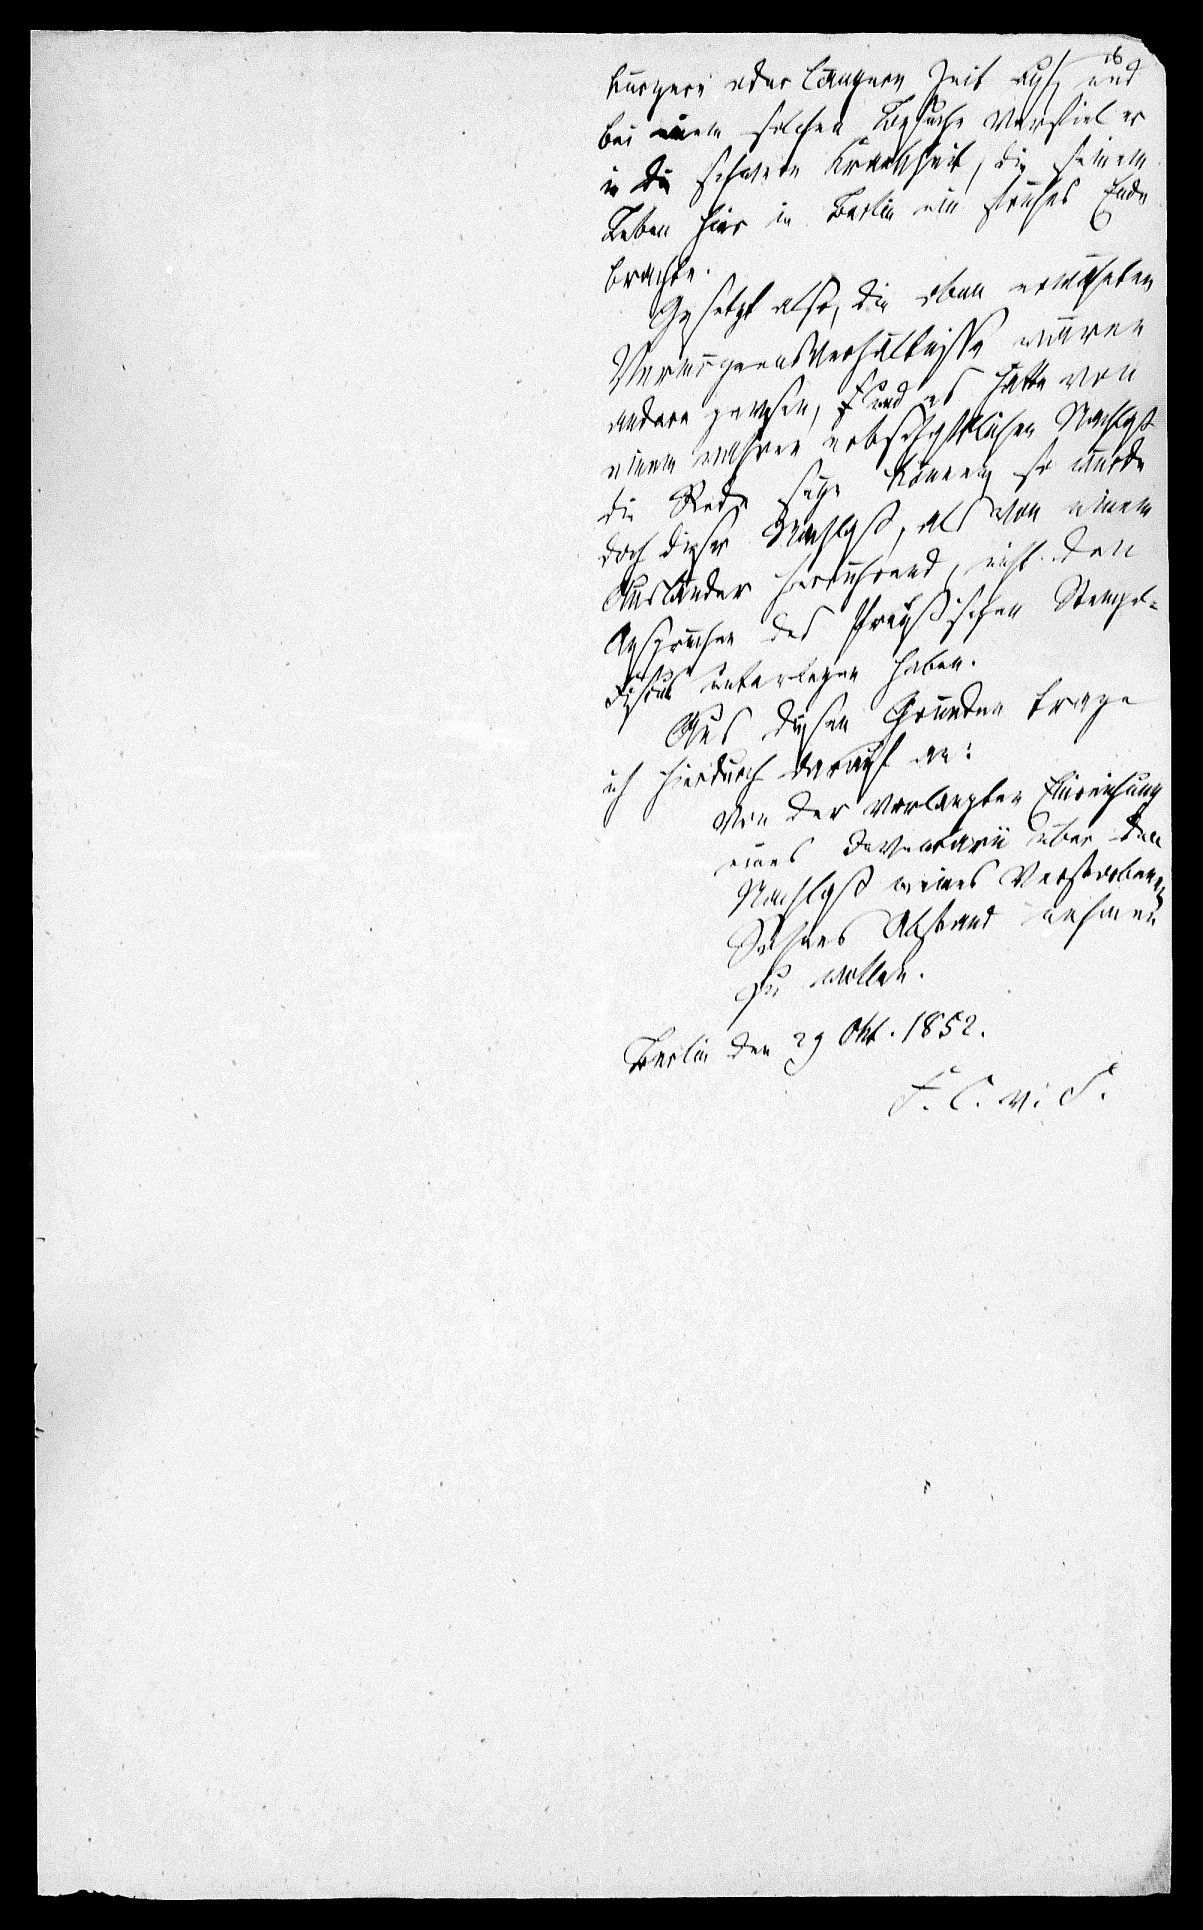 kürzere oder längere Zeit auf, und
bei einem solchen Besuche verfiel er
in die schwere Krankheit, die seinem
Leben hier in Berlin ein frühes Ende
brachte.
Gesetzt also, die oben erwähnten
Vermögensverhältnisse wären
andere gewesen, und es hätte von
einem wahren erbschaftlichen Nachlaß
die Rede seyn können, so würde
doch dieser Nachlaß, als von einem
Ausländer herrührend, nicht den
Ansprüchen des Preußischen Stempel-
Fiskus unterlegen haben.
Aus diesen Gründen trage
ich hierdurch darauf an:
von der verlangten Einreichung
eines Inventarii über den
Nachlaß meines verstorbenen
Sohnes Abstand nehmen
zu wollen.
Berlin den 29 Okt. 1852.
F. C. v. S.